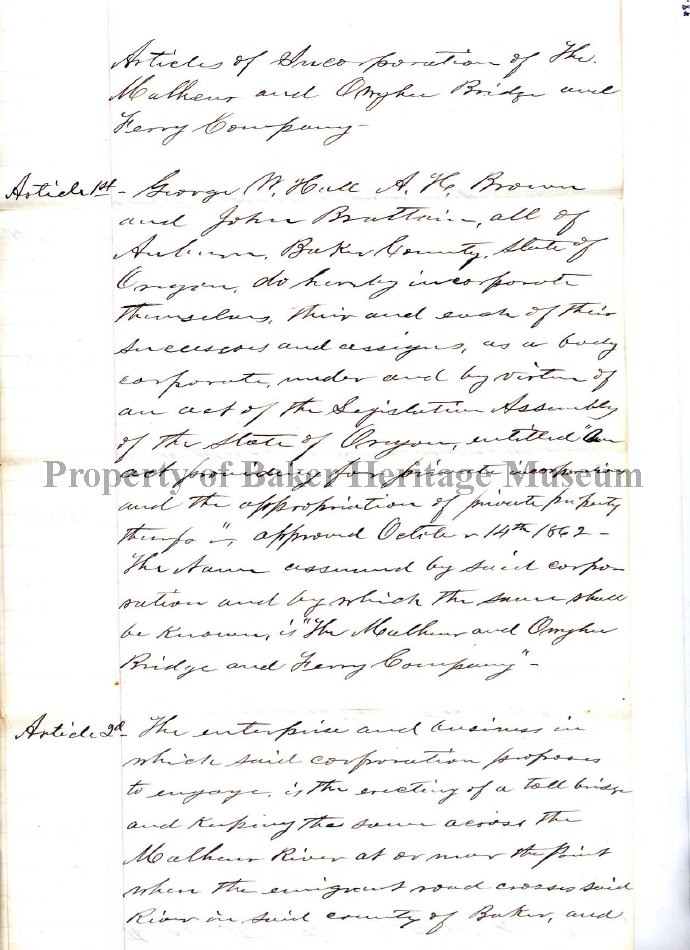 Articles of Incorporation of The
Malheur and Owyhee Bridge and
Ferry Company-
Article 1st- George W. Hall A. H. Brown
and John Brattain-, all of
Auburn, Baker County, State of
Oregon, do hereby incorporate
themselves, their and each of their
successors and assigns, as a body
corporate, under and by virtue of
an act of the Legislative Assembly
of the State of Oregon, entitled "An
act providing for private incorporation
Property of Baker Heritage Museum
and the appropriation of private property
therefor"-, approved October 14th 1862-
The Name assumed by said corpo-
ration and by which the same shall
be known, is "The Malheur and Owyhee
Bridge and Ferry Company"-
Article 2d- The enterprise and business in
which said corporation proposes
to engage, is the erecting of a toll bridge
and keeping the same across the
Malheur River at or near the point
where the emigrant road crosses said
River in said county of Baker, and